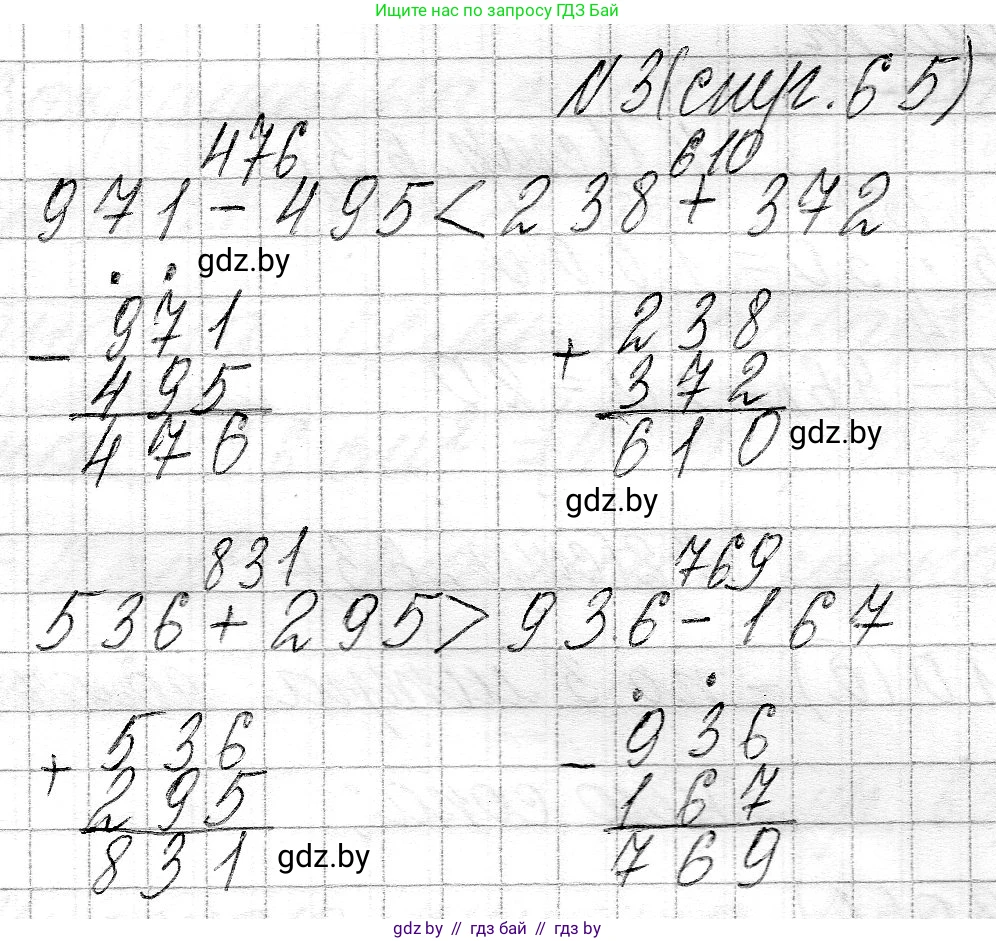 Ищите нас по запросу ГДЗ Бай
N3(стр.65)
476 610
971-495<238+372
gdz.by
- 971
495
476
+ 238
372
610
gdz.by
gdz.by
831 769
536+295>936-167
+ 536
295
831
gdz.by
- 936
167
769
gdz.by // гдз бай // gdz by